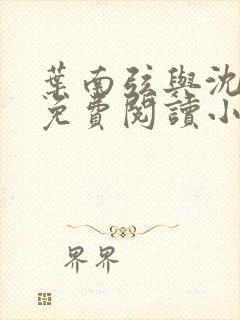 葉南弦與沈
免費閱讀小
界界